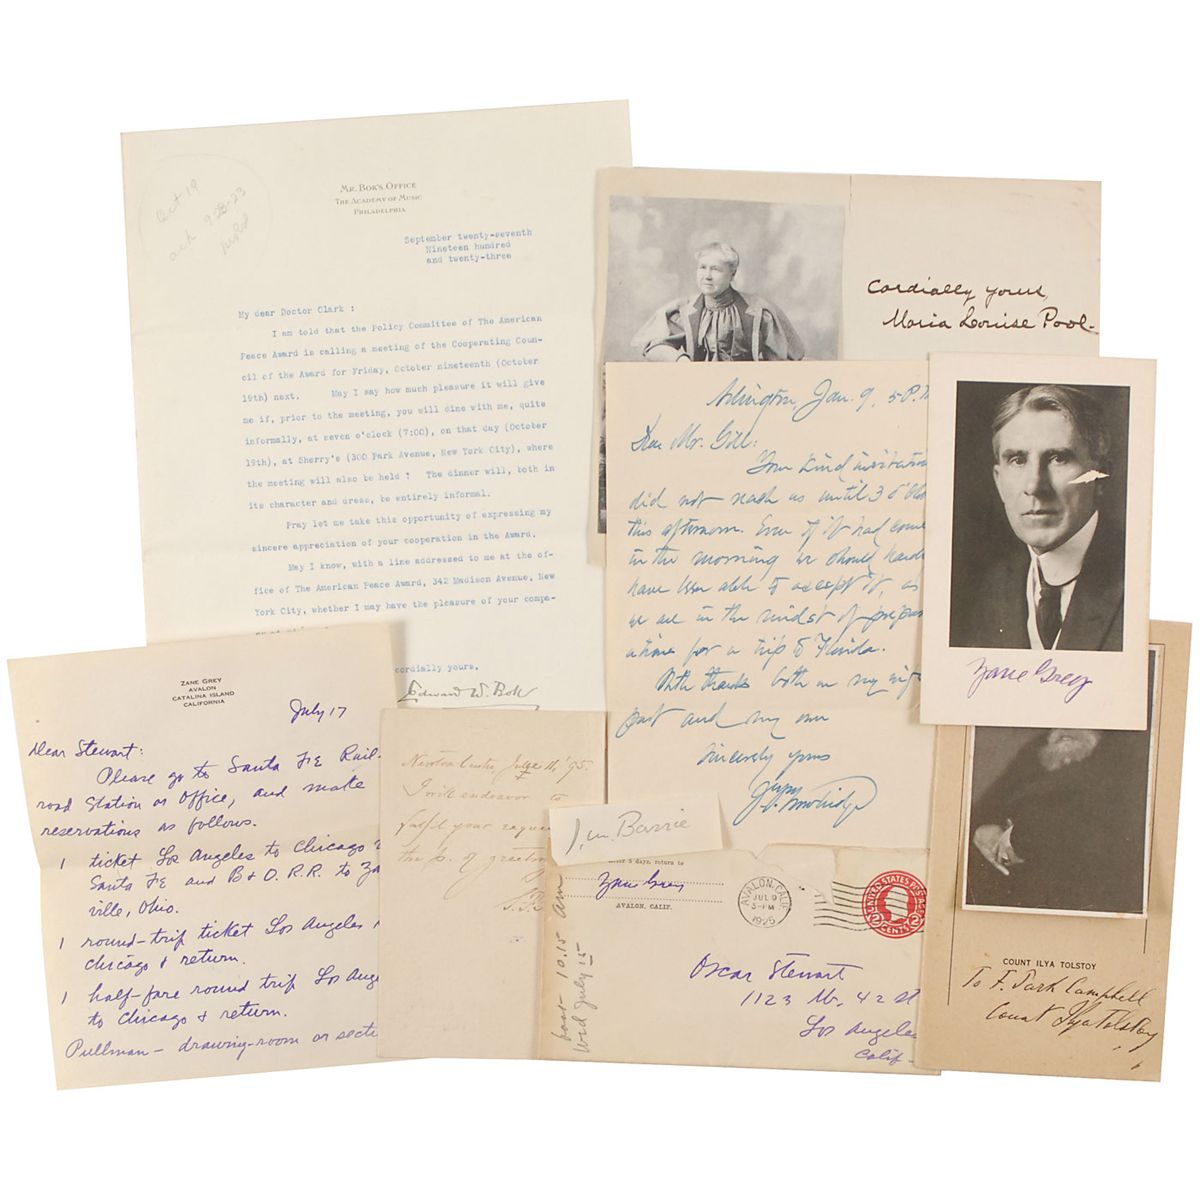 Oct 19
ack 9-28-23
MR. BOK'S OFFICE
THE ACADEMY OF MUSIC
PHILADELPHIA
September twenty-seventh
Nineteen hundred
and twenty-three
My dear Doctor Clark :
I am told that the Policy Committee of The American
Peace Award is calling a meeting of the Cooperating Coun-
cil of the Award for Friday, October nineteenth (October
19th) next. May I say how much pleasure it will give
me if, prior to the meeting, you will dine with me, quite
informally, at seven o'clock (7:00), on that day (October
19th), at Sherry's (300 Park Avenue, New York City), where
the meeting will also be held ? The dinner will, both in
its character and dress, be entirely informal.
Pray let me take this opportunity of expressing my
sincere appreciation of your cooperation in the Award.
May I know, with a line addressed to me at the of-
fice of The American Peace Award, 342 Madison Avenue, New
York City, whether I may have the pleasure of your compa-
cordially yours,
Edward W. Bok
Cordially yours,
Maria Louise Pool-
Arlington, Jan. 9, 5 P.M
Dear Mr. Gill:
Your kind invitation
did not reach us until 3 o'clo
this afternoon. Even if it had come
in the morning we should hardl
have been able to accept it, as
we are in the midst of prepar
ations for a trip to Florida.
With thanks both on my wife's
part and my own
Sincerely yours
J. T. Trowbridge
Zane Grey
COUNT ILYA TOLSTOY
To F. Park Campbell
Count Ilya Tolstoy
ZANE GREY
AVALON
CATALINA ISLAND
CALIFORNIA
July 17
Dear Stewart:
Please go to Santa Fe Rail-
road Station or Office, and make
reservations as follows.
1 ticket Los Angeles to Chicago
Santa Fe and B & O. R.R. to Za
ville, Ohio.
1 round-trip ticket Los Angeles
Chicago & return.
1 half-fare round trip Los Ange
to Chicago & return.
Pullman - drawing-room or secti
'95.
I will endeavor to
fulfil your reques
J. M. Barrie
after 5 days, return to
Zane Grey
AVALON, CALIF.
AVALON, CALIF.
JUL 9
3-PM
1925
UNITED STATES POSTAGE
2 CENTS 2
Oscar Stewart
1123 W. 42 St
Los Angeles
Calif-
boat - 10.15 am
Wed July 15